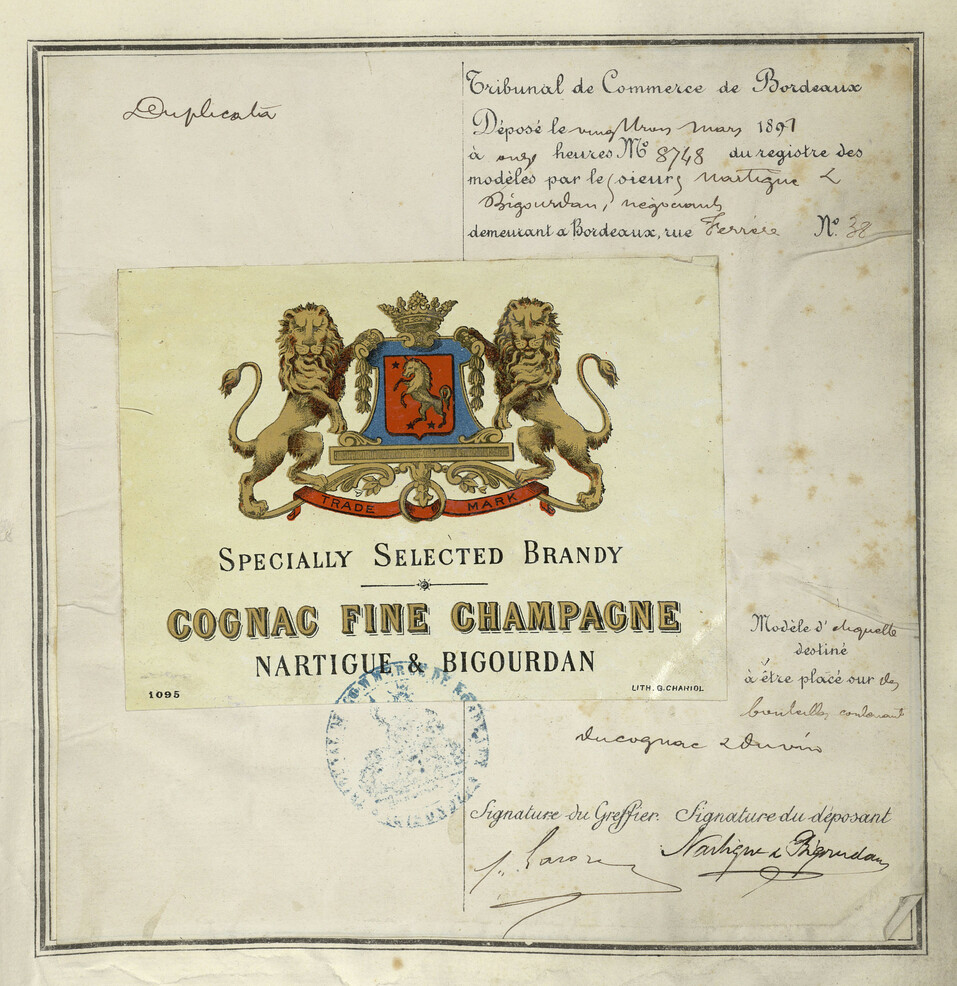 Duplicata
Tribunal de Commerce de Bordeaux
Déposé le vingt trois mars 1891
à onze heures No 8748 du registre des
modèles par les sieurs Nartigue &
Bigourdan, négociants
demeurant a Bordeaux, rue Ferrère No. 38
TRADE MARK
SPECIALLY SELECTED BRANDY
COGNAC FINE CHAMPAGNE
NARTIGUE & BIGOURDAN
1095
LITH. G. CHARIOL
Modèle d'étiquette
destiné
à être placé sur des
bouteilles contenant
du cognac & du vin
TRIBUNAL DE COMMERCE DE BORDEAUX
Signature du Greffier. Signature du déposant
Nartigue & Bigourdan